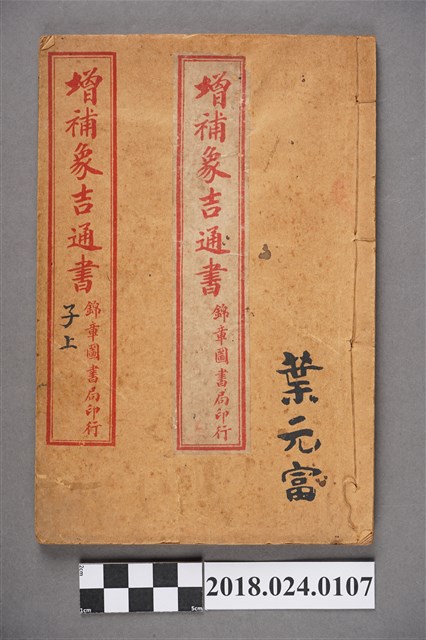 葉元富
增補象吉通書
錦章圖書局印行
增補象吉通書
子上
錦章圖書局印行
2cm
1cm
5cm
2018.024.0107